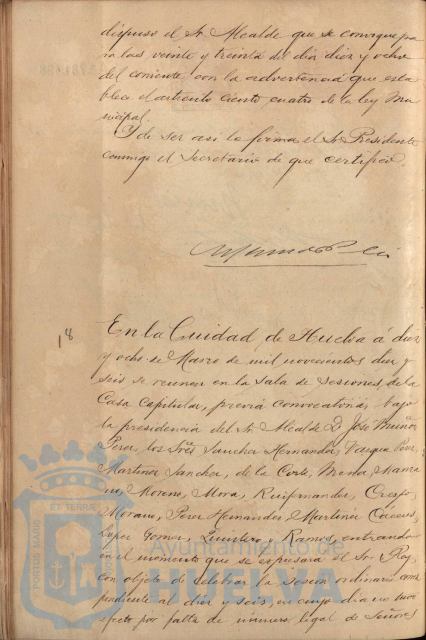 dispuso el Sr. Alcalde que se convoque pa
ra las veinte y treinta del dia diez y ocho
del corriente, con la advertencia que esta
blece el articulo ciento cuatro de la ley Mu
nicipal.
Y de ser asi lo firma el Sr. Presidente
conmigo el Secretario de que certifico.
18
En la Ciudad de Huelva á diez
y ocho de Marzo de mil novecientos diez y
seis se reunen en la Sala de Sesiones, de la
Casa Capitular, previa convocatoria, bajo
la presidencia del Sr. Alcalde D. José Muñoz
Perez, los Sres Sanchez Hernandez, Vazquez Perez,
Martinez Sanchez, de la Corte,
Moreno, Mora, Ruifernandez, Crespo,
Morano, Perez Hernandez, Martinez
Lopez Gomez, Quintero y Ramos, entrando
en el momento que se expresará el Sr. Rey,
con objeto de celebrar la sesion ordinaria corres
pondiente al diez y seis, en cuyo dia no tuvo
efecto por falta de numero legal de Señores
PORTUS MARIS ET TERRAE
Ayuntamiento de
HUELVA